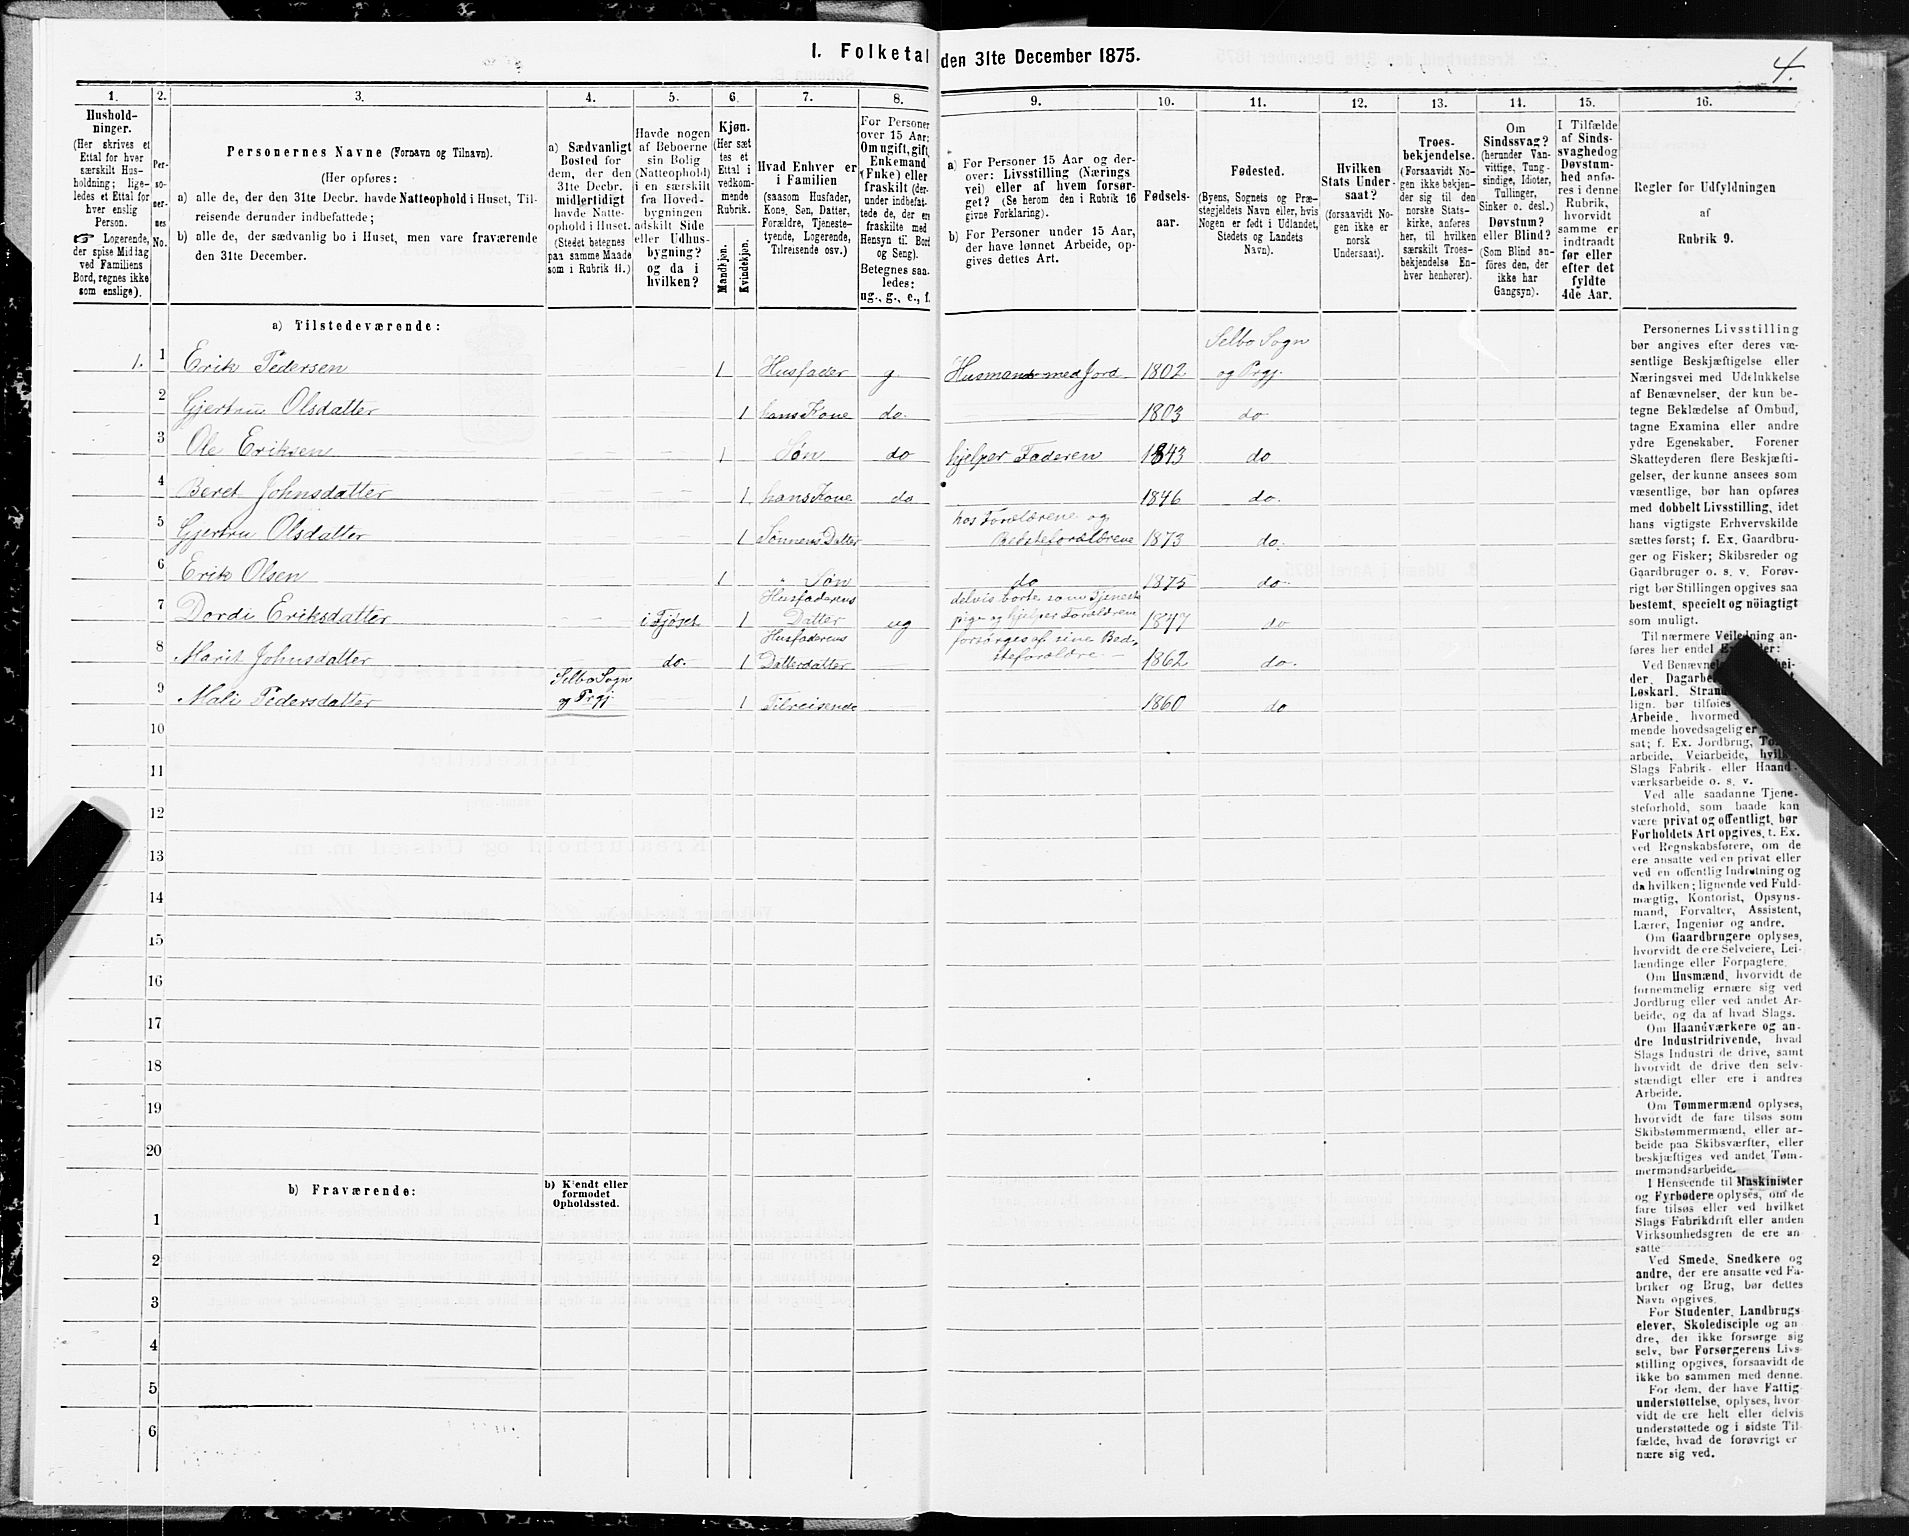 4.
I. Folketal den 31te December 1875.
1. 2. 3. 4. 5. 6. 7. 8. 9. 10. 11. 12. 13. 14. 15. 16.
Hushold-
ninger.
(Her skrives et
Ettal for hver
særskilt Hus-
holdning; lige-
ledes et Ettal for
hver enslig
Person.
☞ Logerende,
der spise Middag
ved Familiens
Bord, regnes ikke
som enslige).
Per-
so-
ner-
nes
No.
Personernes Navne (Fornavn og Tilnavn).
(Her opføres:
a) alle de, der den 31te Decbr. havde Natteophold i Huset, Til-
reisende derunder indbefattede;
b) alle de, der sædvanlig bo i Huset, men vare fraværende
den 31te December.
a) Sædvanligt
Bosted for
dem, der den
31te Decbr.
midlertidigt
havde Natte-
ophold i Huset.
(Stedet betegnes
paa samme Maade
som i Rubrik 11.)
Havde nogen
af Beboerne
sin Bolig
(Natteophold)
i en særskilt
fra Hoved-
bygningen
adskilt Side
eller Udhus-
bygning?
og da i
hvilken?
Kjøn.
(Her sæt
tes et
Ettal i
vedkom-
mende
Rubrik.
Mandkjøn.
Kvindekjøn.
Hvad Enhver er
i Familien
(saasom Husfader,
Kone, Søn, Datter,
Forældre, Tjeneste-
tyende, Logerende,
Tilreisende osv.)
For Personer
over 15 Aar:
Om ugift, gift,
Enkemand
(Enke) eller
fraskilt (der-
under indbefat-
tede de, der ere
fraskilte med
Hensyn til Bord
og Seng).
Betegnes saa-
ledes:
ug., g., e., f.
a) For Personer 15 Aar og der-
over: Livsstilling (Nærings
vei) eller af hvem forsør-
get? (Se herom den i Rubrik 16
givne Forklaring).
b) For Personer under 15 Aar,
der have lønnet Arbeide, op-
gives dettes Art.
Fødsels-
aar.
Fødested.
(Byens, Sognets og Præ-
stegjeldets Navn eller, hvis
Nogen er født i Udlandet,
Stedets og Landets
Navn).
Hvilken
Stats Under-
saat?
(forsaavidt No-
gen ikke er
norsk
Undersaat).
Troes-
bekjendelse.
(Forsaavidt No-
gen ikke bekjen-
der sig til den
norske Stats-
kirke, anføres
her, til hvilken
særskilt Troes-
bekjendelse En-
hver henhører).
Om
Sindssvag?
(herunder Van-
vittige, Tung-
sindige, Idioter,
Tullinger,
Sinker o. desl.)
Døvstum?
eller Blind?
(Som Blind an-
føres den, der
ikke har
Gangsyn).
I Tilfælde
af Sinds-
svaghed og
Døvstum-
hed anfø-
res i denne
Rubrik,
hvorvidt
samme er
indtraadt
før eller
efter det
fyldte
4de Aar.
Regler for Udfyldningen
af
Rubrik 9.
a) Tilstedeværende:
1. 1 Erik Pedersen 1 Husfader g. Husmand med Jord 1802 Selbo Sogn og Prgj.
2 Gjertru Olsdatter 1 hans Kone do. 1803 do
3 Ole Eriksen 1 Søn do hjelper Faderen 1843 do
4 Beret Johnsdatter 1 hans Kone do 1846 do.
5 Gjertru Olsdatter 1 Sønnens Datter hos Forældrene og Bedsteforældrene 1873 do.
6 Erik Olsen 1 " Søn do 1875 do.
7 Dordi Eriksdatter i Fjøset 1 Husfaderens Datter ug delvis borte som Tjeneste pige og hjelper Forældrene 1847 do
8 Marit Johnsdatter do. 1 Husfaderens Datterdatter forsørges af sine Bed- steforældre 1862 do.
9 Mali Pedersdatter Selbo Sogn og Prgj. 1 Tilreisende 1860 do
10
11
12
13
14
15
16
17
18
19
20
b) Fraværende:
b) Kjendt eller
formodet
Opholdssted.
1
2
3
4
5
6
Personernes Livsstilling
bør angives efter deres væ-
sentlige Beskjæftigelse eller
Næringsvei med Udelukkelse
af Benævnelser, der kun be-
tegne Beklædelse af Ombud,
tagne Examina eller andre
ydre Egenskaber. Forener
Skatteyderen flere Beskjæfti-
gelser, der kunne ansees som
væsentlige, bør han opføres
med dobbelt Livsstilling, idet
hans vigtigste Erhvervskilde
sættes først; f. Ex. Gaardbru-
ger og Fisker; Skibsreder og
Gaardbruger o. s. v. Forøv-
rigt bør Stillingen opgives saa
bestemt, specielt og nöiagtigt
som muligt.
Til nærmere Veiledning an-
føres her endel
Ved Benævnel
der, Dagarbe
Løskarl, Stran
lign. bør tilføies
Arbeide, hvormed
mende hovedsagelig er
sat; f. Ex. Jordbrug,
arbeide, Veiarbeide,
Slags Fabrik- eller Haand-
værksarbeide o. s. v.
Ved alle saadanne Tjene-
steforhold, som baade kan
være privat og offentligt, bør
Forholdets Art opgives, t. Ex.
ved Regnskabsførere, om de
ere ansatte ved en privat eller
ved en offentlig Indretning og
da hvilken; lignende ved Fuld-
mægtig, Kontorist, Opsyns-
mand, Forvalter, Assistent,
Lærer, Ingeniør og andre.
Om Gaardbrugere oplyses,
hvorvidt de ere Selveiere, Lei-
lændinge eller Forpagtere.
Om Husmænd, hvorvidt de
fornemmelig ernære sig ved
Jordbrug eller ved andet Ar-
beide, og da af hvad Slags.
Om Haandværkere og an-
dre Industridrivende, hvad
Slags Industri de drive, samt
hvorvidt de drive den selv-
stændigt eller ere i andres
Arbeide.
Om Tømmermænd oplyses,
hvorvidt de fare tilsøs som
Skibstømmermænd, eller ar-
beide paa Skibsværfter, eller
beskjæftiges ved andet Tøm-
mermandsarbeide.
I Henseende til Maskinister
og Fyrbødere oplyses, om de
fare tilsøs eller ved hvilket
Slags Fabrikdrift eller anden
Virksomhedsgren de ere an-
satte
Ved Smede, Snedkere og
andre, der ere ansatte ved Fa-
briker og Brug, bør dettes
Navn opgives.
For Studenter, Landbrugs
elever, Skoledisciple og an
dre, der ikke forsørge sig
selv, bør Forsørgerens Livs-
stilling opgives, forsaavidt de
ikke bo sammen med denne.
For dem, der have Fattig-
understøttelse, oplyses, hvor-
vidt de ere helt eller delvis
understøttede og i sidste Til-
fælde, hvad de forøvrigt er
nære sig ved.